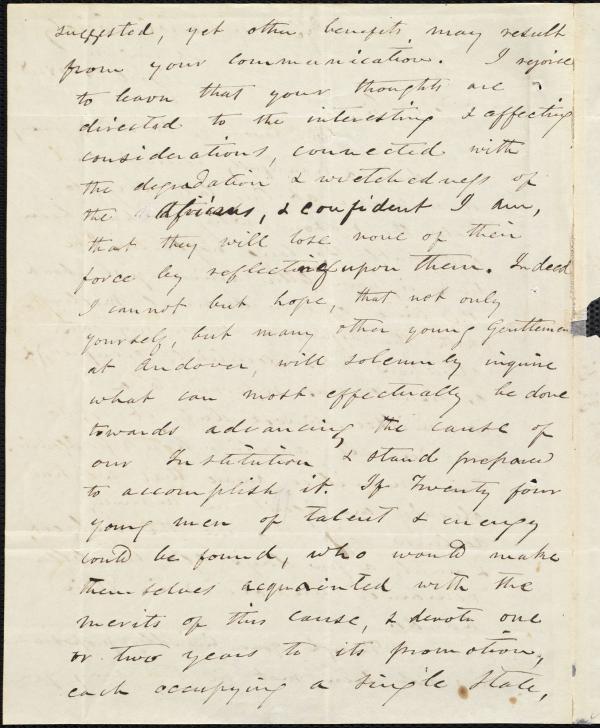 suggested, yet other benefits may result
from your communication. I rejoice
to learn that your thoughts are
directed to the interesting & affecting
considerations, connected with
the degradation & wretchedness of
the Africans, & confident I am,
that they will lose none of their
force by reflecting upon them. Indeed
I cannot but hope, that not only
yourself, but many other young Gentlemen
at Andover, will solemnly inquire
what can most effectually be done
towards advancing the cause of
our Institution & stand prepared
to accomplish it. If Twenty four
young men of talent & energy
could be found, who would make
themselves acquainted with the
merits of this cause, & devote one
or two years to its promotion,
each occupying a single State,